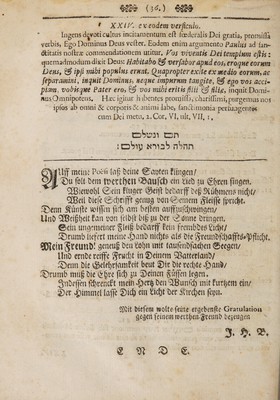 ( 36. )
XXIV. ex eodem versiculo.
Ingens devoti cultus incitamentum est fœderalis Dei gratia, promissa
verbis, Ego Dominus Deus vester. Eodem enim argumento Paulus ad san-
ctitatis nostræ commendationem utitur, Vos viventis Dei templum estis:
quemadmodum dixit Deus: Habitabo & versabor apud eos, eroque eorum
Deus, & ipsi mihi populus erunt. Quapropter exite ex medio eorum, ac
separamini, inquit Dominus, neque impurum tangite, & ego vos acci-
piam, vobisque Pater ero, & vos mihi eritis filii & filiæ, inquit Domi-
nus Omnipotens. Hæc igitur habentes promissa, charissimi, purgemus nos
ipsos ab omni & corporis & animi labe, sanctimonia perduagentes
cum Dei metu, 2. Cor. VI, ult. VII, 1.
תם ונשלם
תהלה לבורא עולם:
Auff mein: Poësi laß deine Sayten klingen/
Du solt dem werthen Bausch ein Lied zu Ehren singen.
Wiewohl Sein kluger Geist bedarff deß Rühmens nicht/
Weil diese Schrifft genug von Seinem Fleisse spricht.
Denn Künste wissen sich am besten auffzuschwingen/
Und Weißheit kan von selbst biß zu der Sonne dringen.
Sein ungemeiner Fleiß bedarff kein fremddes Licht/
Drumb liefert meine Hand nichts als die Freundschaffts-Pflicht.
Mein Freund! geneuß den Lohn mit tausendfachen Seegen/
Und ernde reiffe Frucht in Deinem Vatterland/
Denn die Gelehrsamkeit beut Dir die rechte Hand/
Drumb muß die Ehre sich zu Deinen Füssen legen.
Indessen schrenckt mein Hertz den Wunsch mit kurtzem ein/
Der Himmel lasse Dich ein Licht der Kirchen seyn.
Mit diesem wolte seine ergebenste Gratulation
gegen seinem werthen Freund bezeugen
J. H. B.
E N D E.